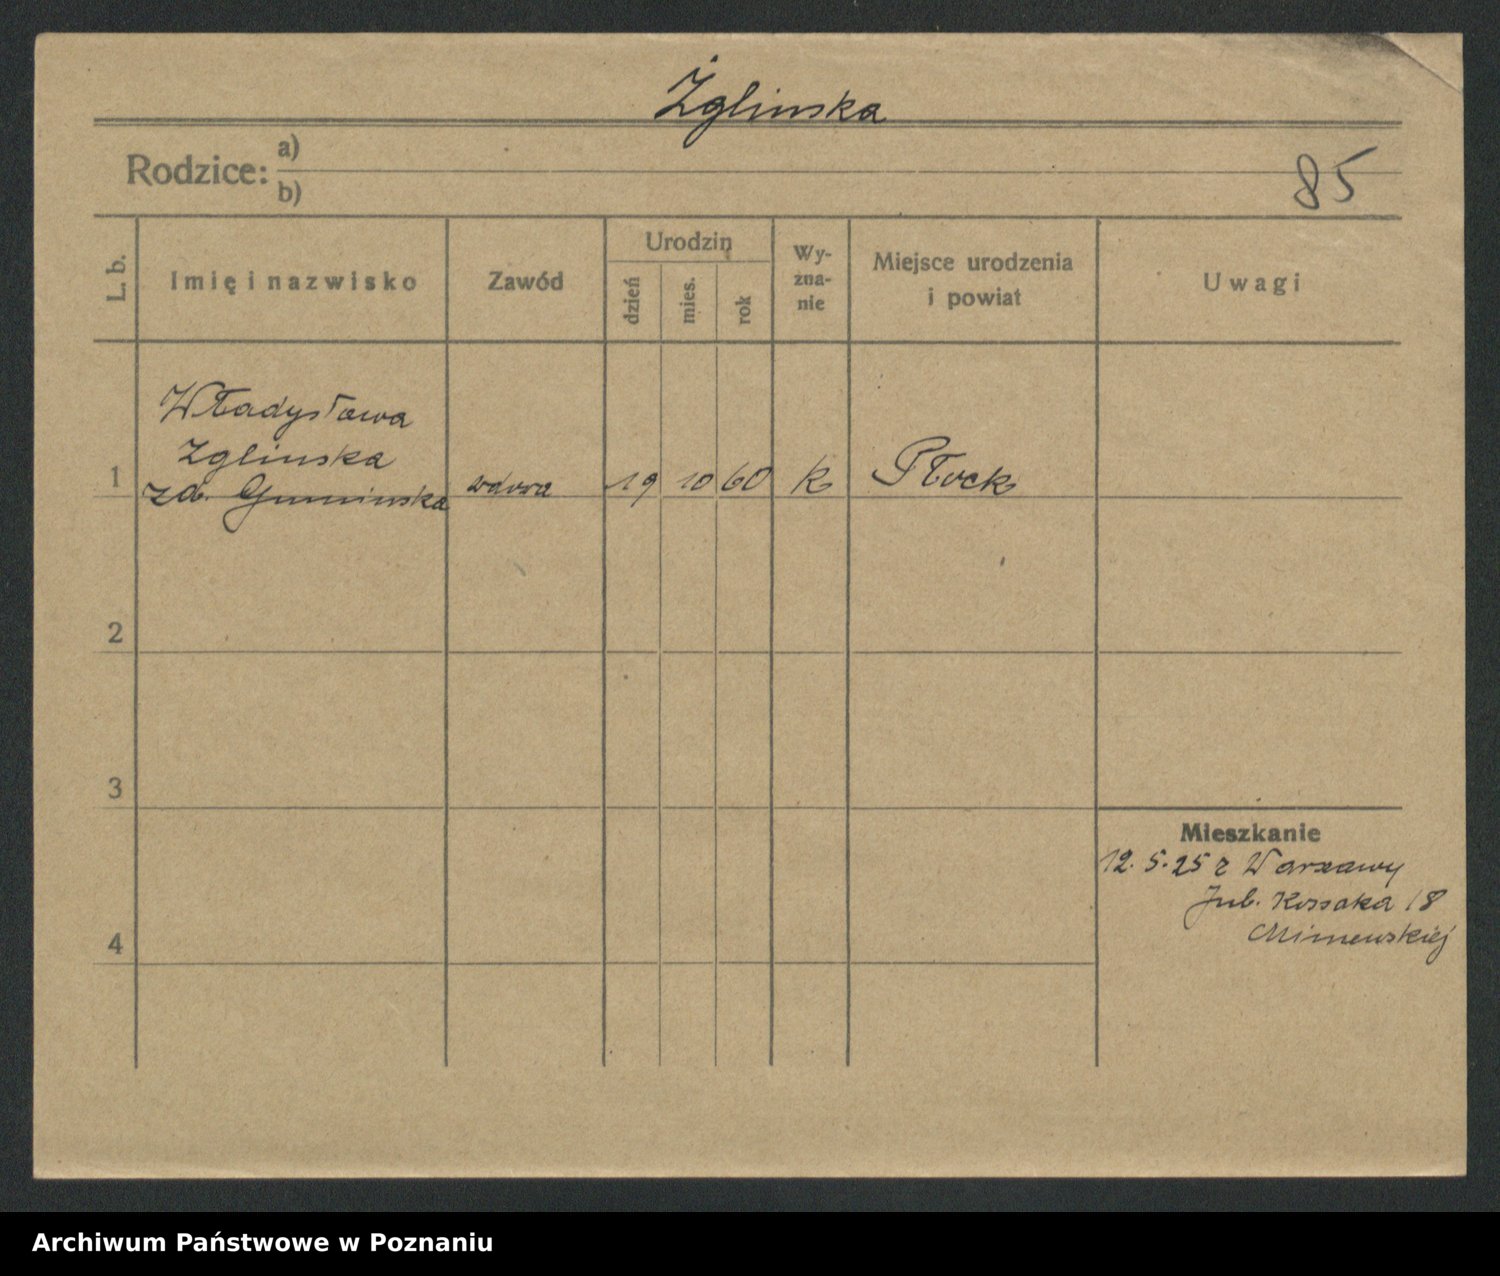 Żglinska
Rodzice: a)
b)
85
L. b.
Imię i nazwisko
Zawód
Urodzin
dzień
mies.
rok
Wy-
zna-
nie
Miejsce urodzenia
i powiat
Uwagi
Władysława
Zglinska
1 zd. Guminska wdowa 19 10 60 k Płock
2
3
Mieszkanie
12. 5. 25 z Warszawy
Kossaka 18
4
Archiwum Państwowe w Poznaniu